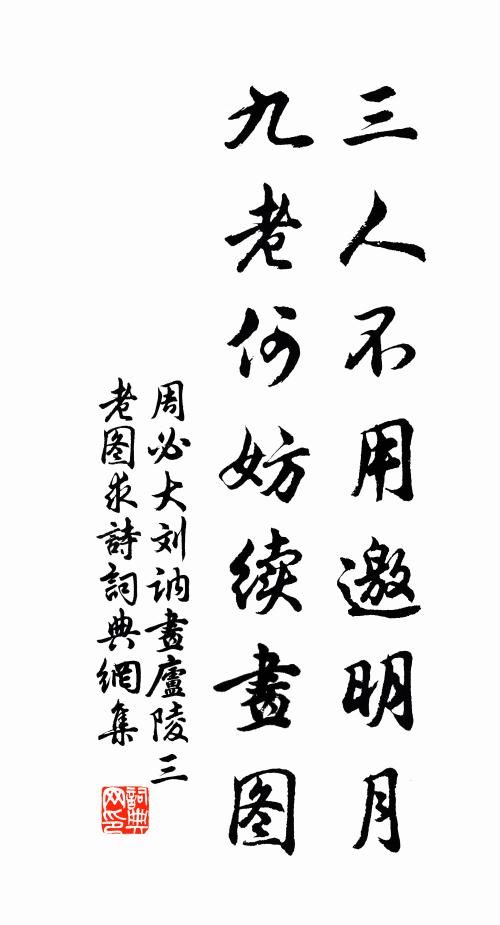 三人不用邀明月
九老何妨续畫图
周必大刘讷畫廬陵三
老图求詩詞典網集
詞典
网印